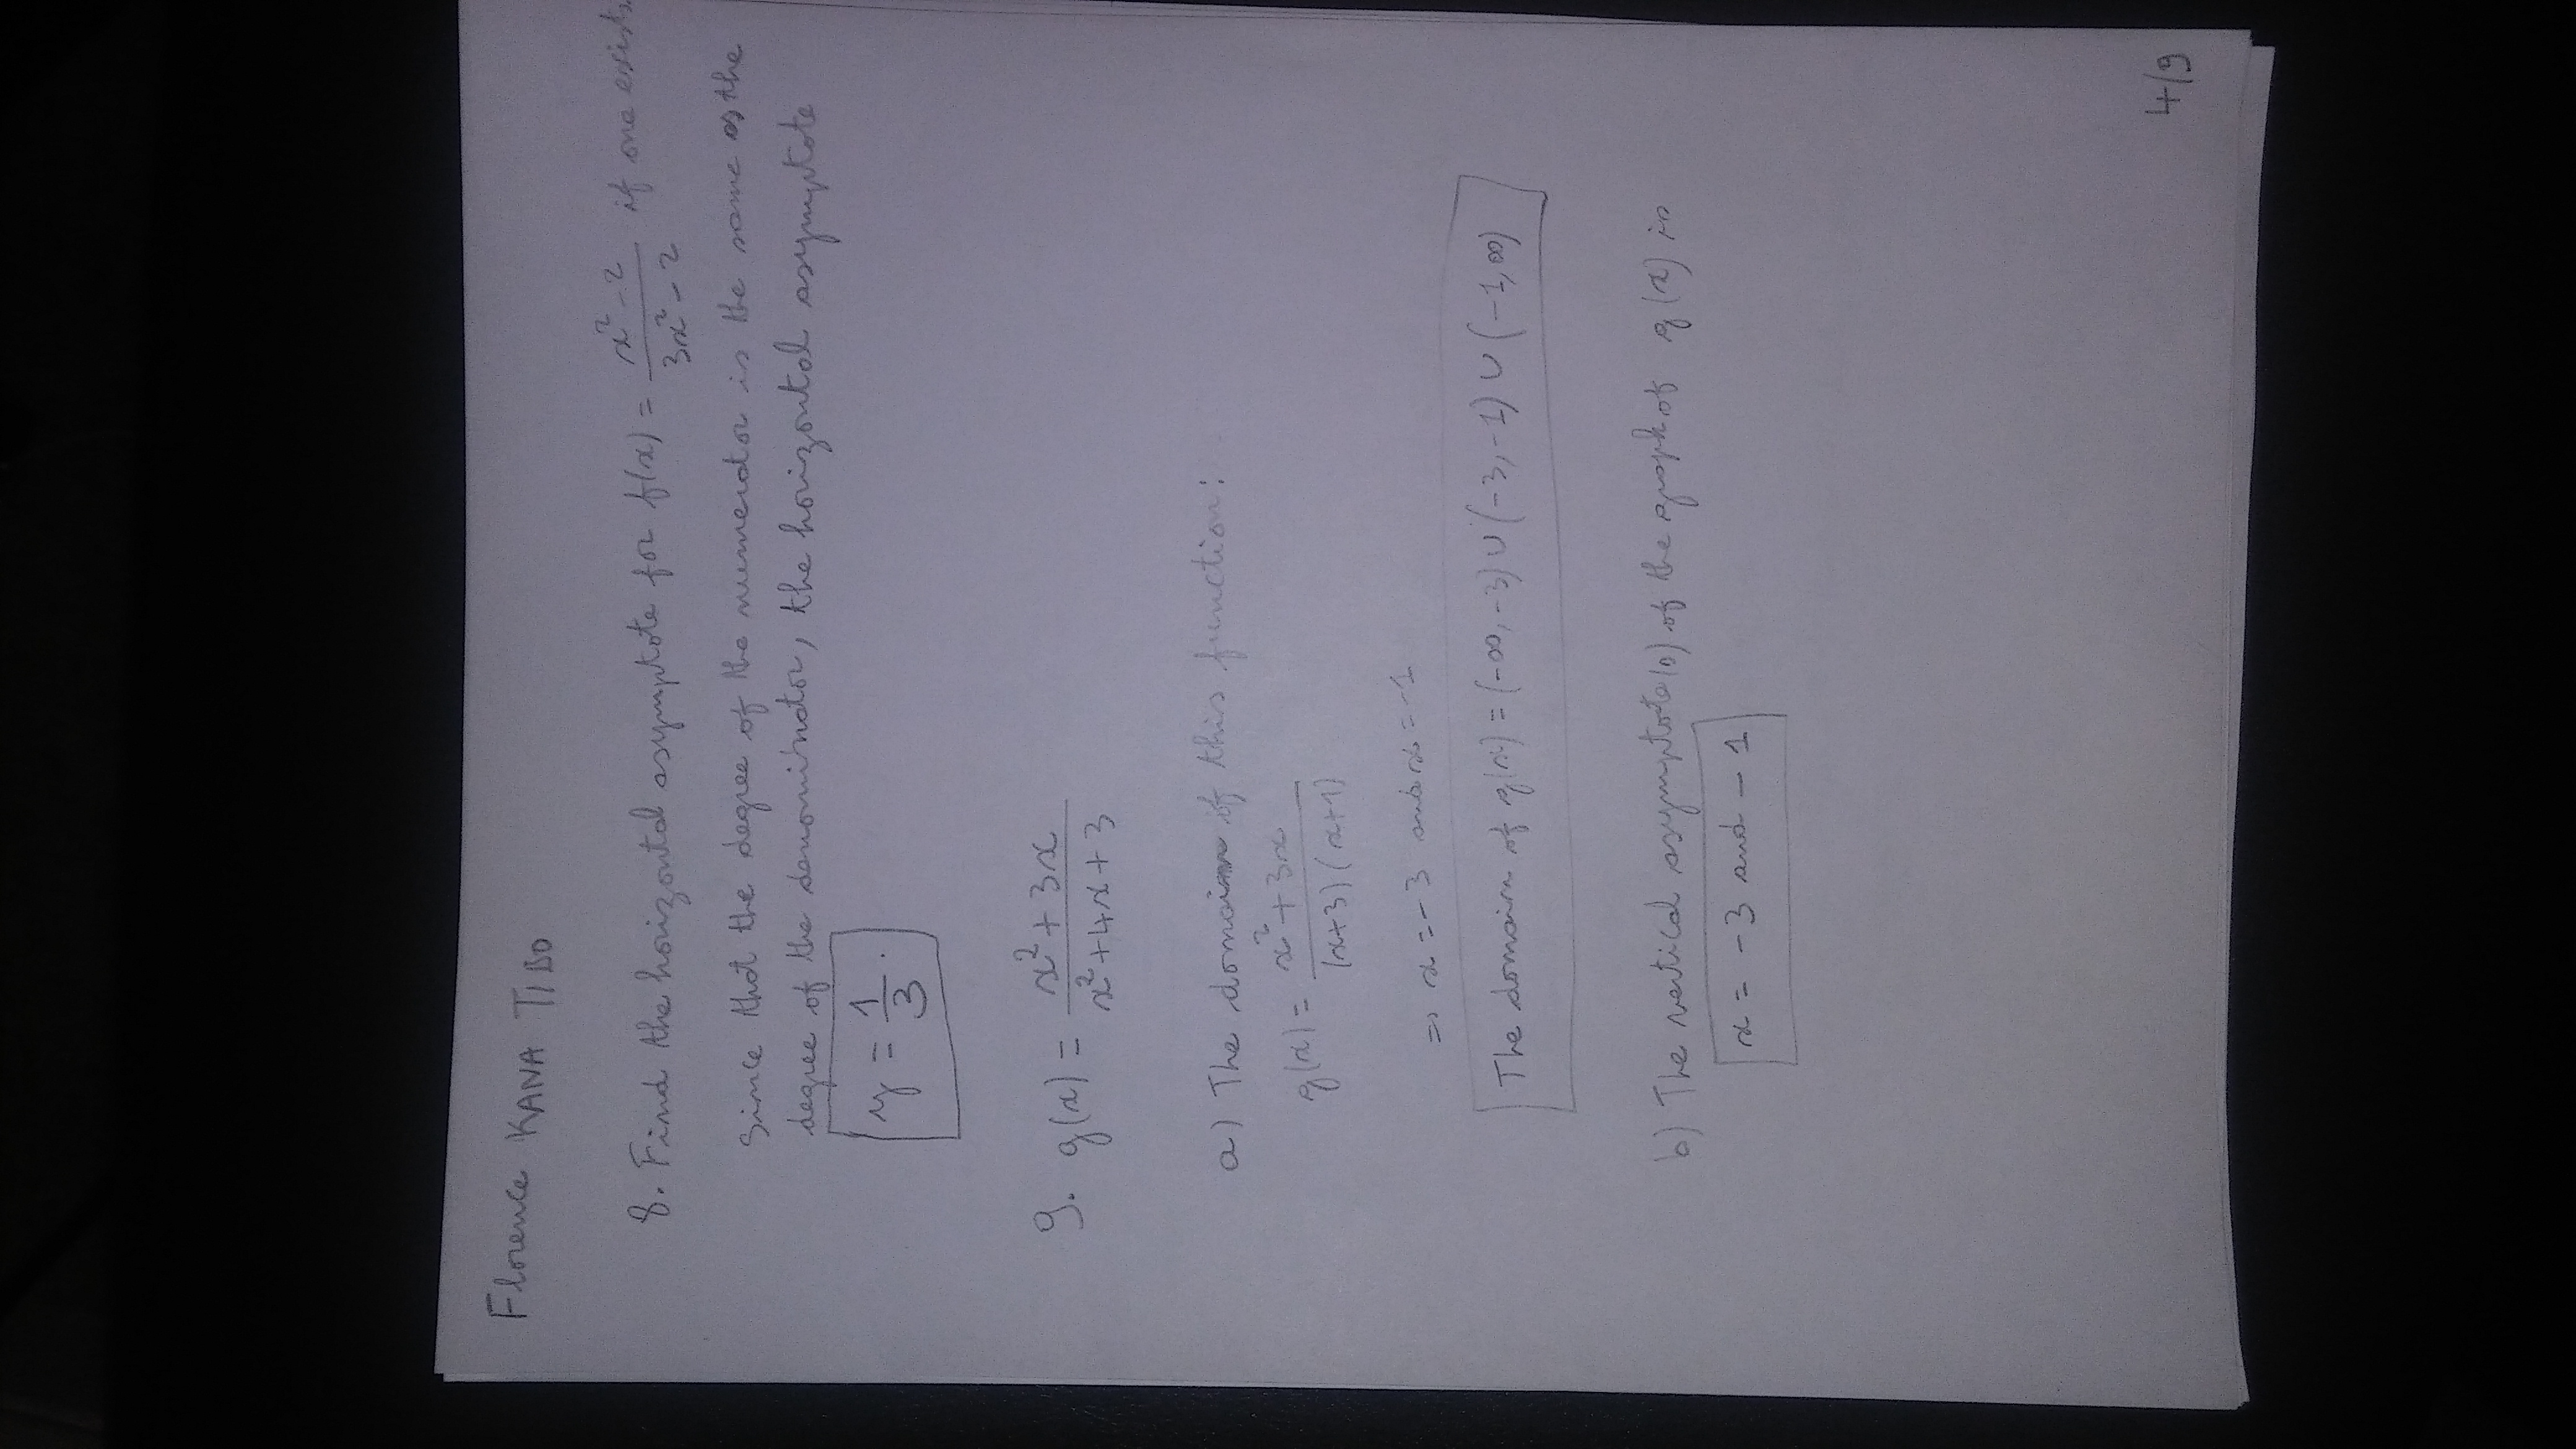 Florence KANA TIBO
8. Find the horizontal asymptote for f(x) = \frac{x^2-2}{3x^2-2} if one exists.
Since that the degree of the numerator is the same as the
degree of the denominator, the horizontal asymptote
y = \frac{1}{3}.
9. g(x) = \frac{x^2+3x}{x^2+4x+3}
a) The domain of this function:
g(x) = \frac{x^2+3x}{(x+3)(x+1)}
⇒ x = -3 and x = -1
The domain of g(x) = (-∞, -3) ∪ (-3, -1) ∪ (-1, ∞)
b) The vertical asymptote(s) of the graph of g(x) is
x = -3 and -1
4/9